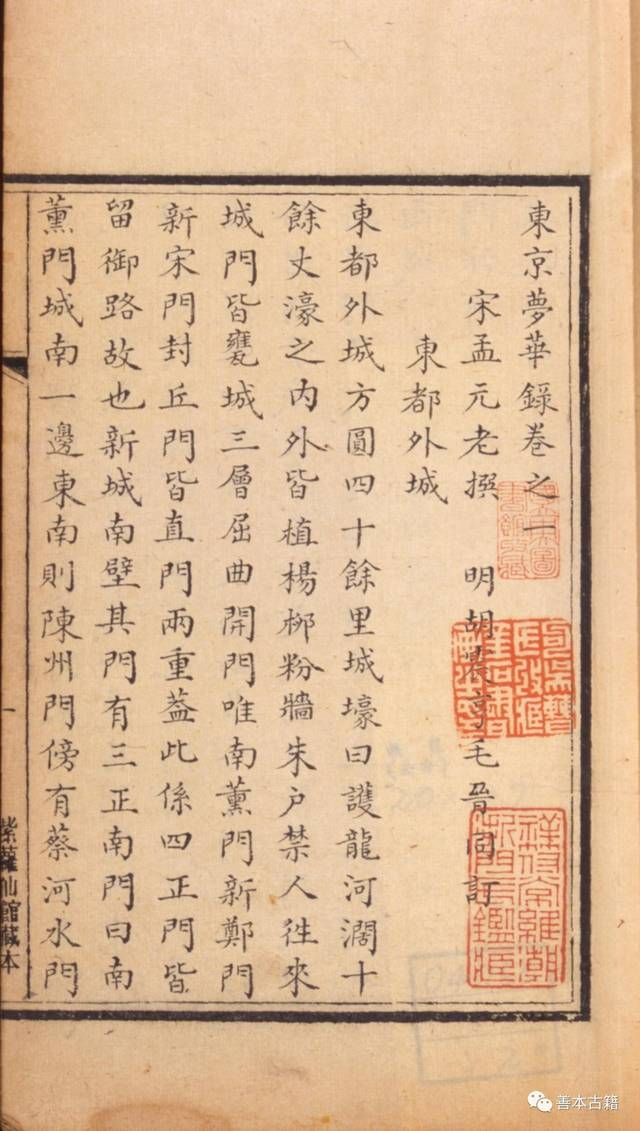 東京夢華錄卷之一
宋孟元老撰　明胡震亨毛晉同訂
東都外城
東都外城方圓四十餘里城壕曰護龍河濶十
餘丈濠之內外皆植楊桺粉牆朱戶禁人徃來
城門皆甕城三層屈曲開門唯南薰門新鄭門
新宋門封丘門皆直門兩重葢此係四正門皆
留御路故也新城南壁其門有三正南門曰南
薰門城南一邊東南則陳州門傍有蔡河水門
一
紫蘿仙館藏本
善本古籍